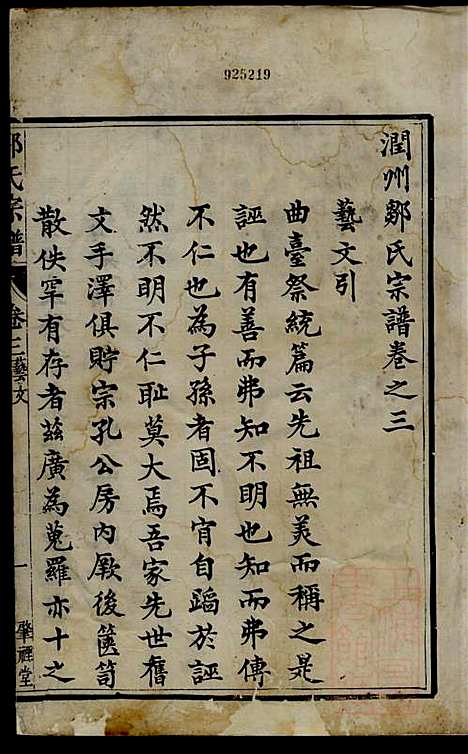 925219
潤州鄒氏宗譜卷之三
藝文引
曲臺祭統篇云先祖無美而稱之是
誣也有善而弗知不明也知而弗傳
不仁也為子孫者固不肯自蹈於誣
然不明不仁耻莫大焉吾家先世舊
文手澤俱貯宗孔公房内厥後篋笥
散佚罕有存者兹廣為蒐羅亦十之
鄒氏宗譜
卷三藝文
一
肇禋堂